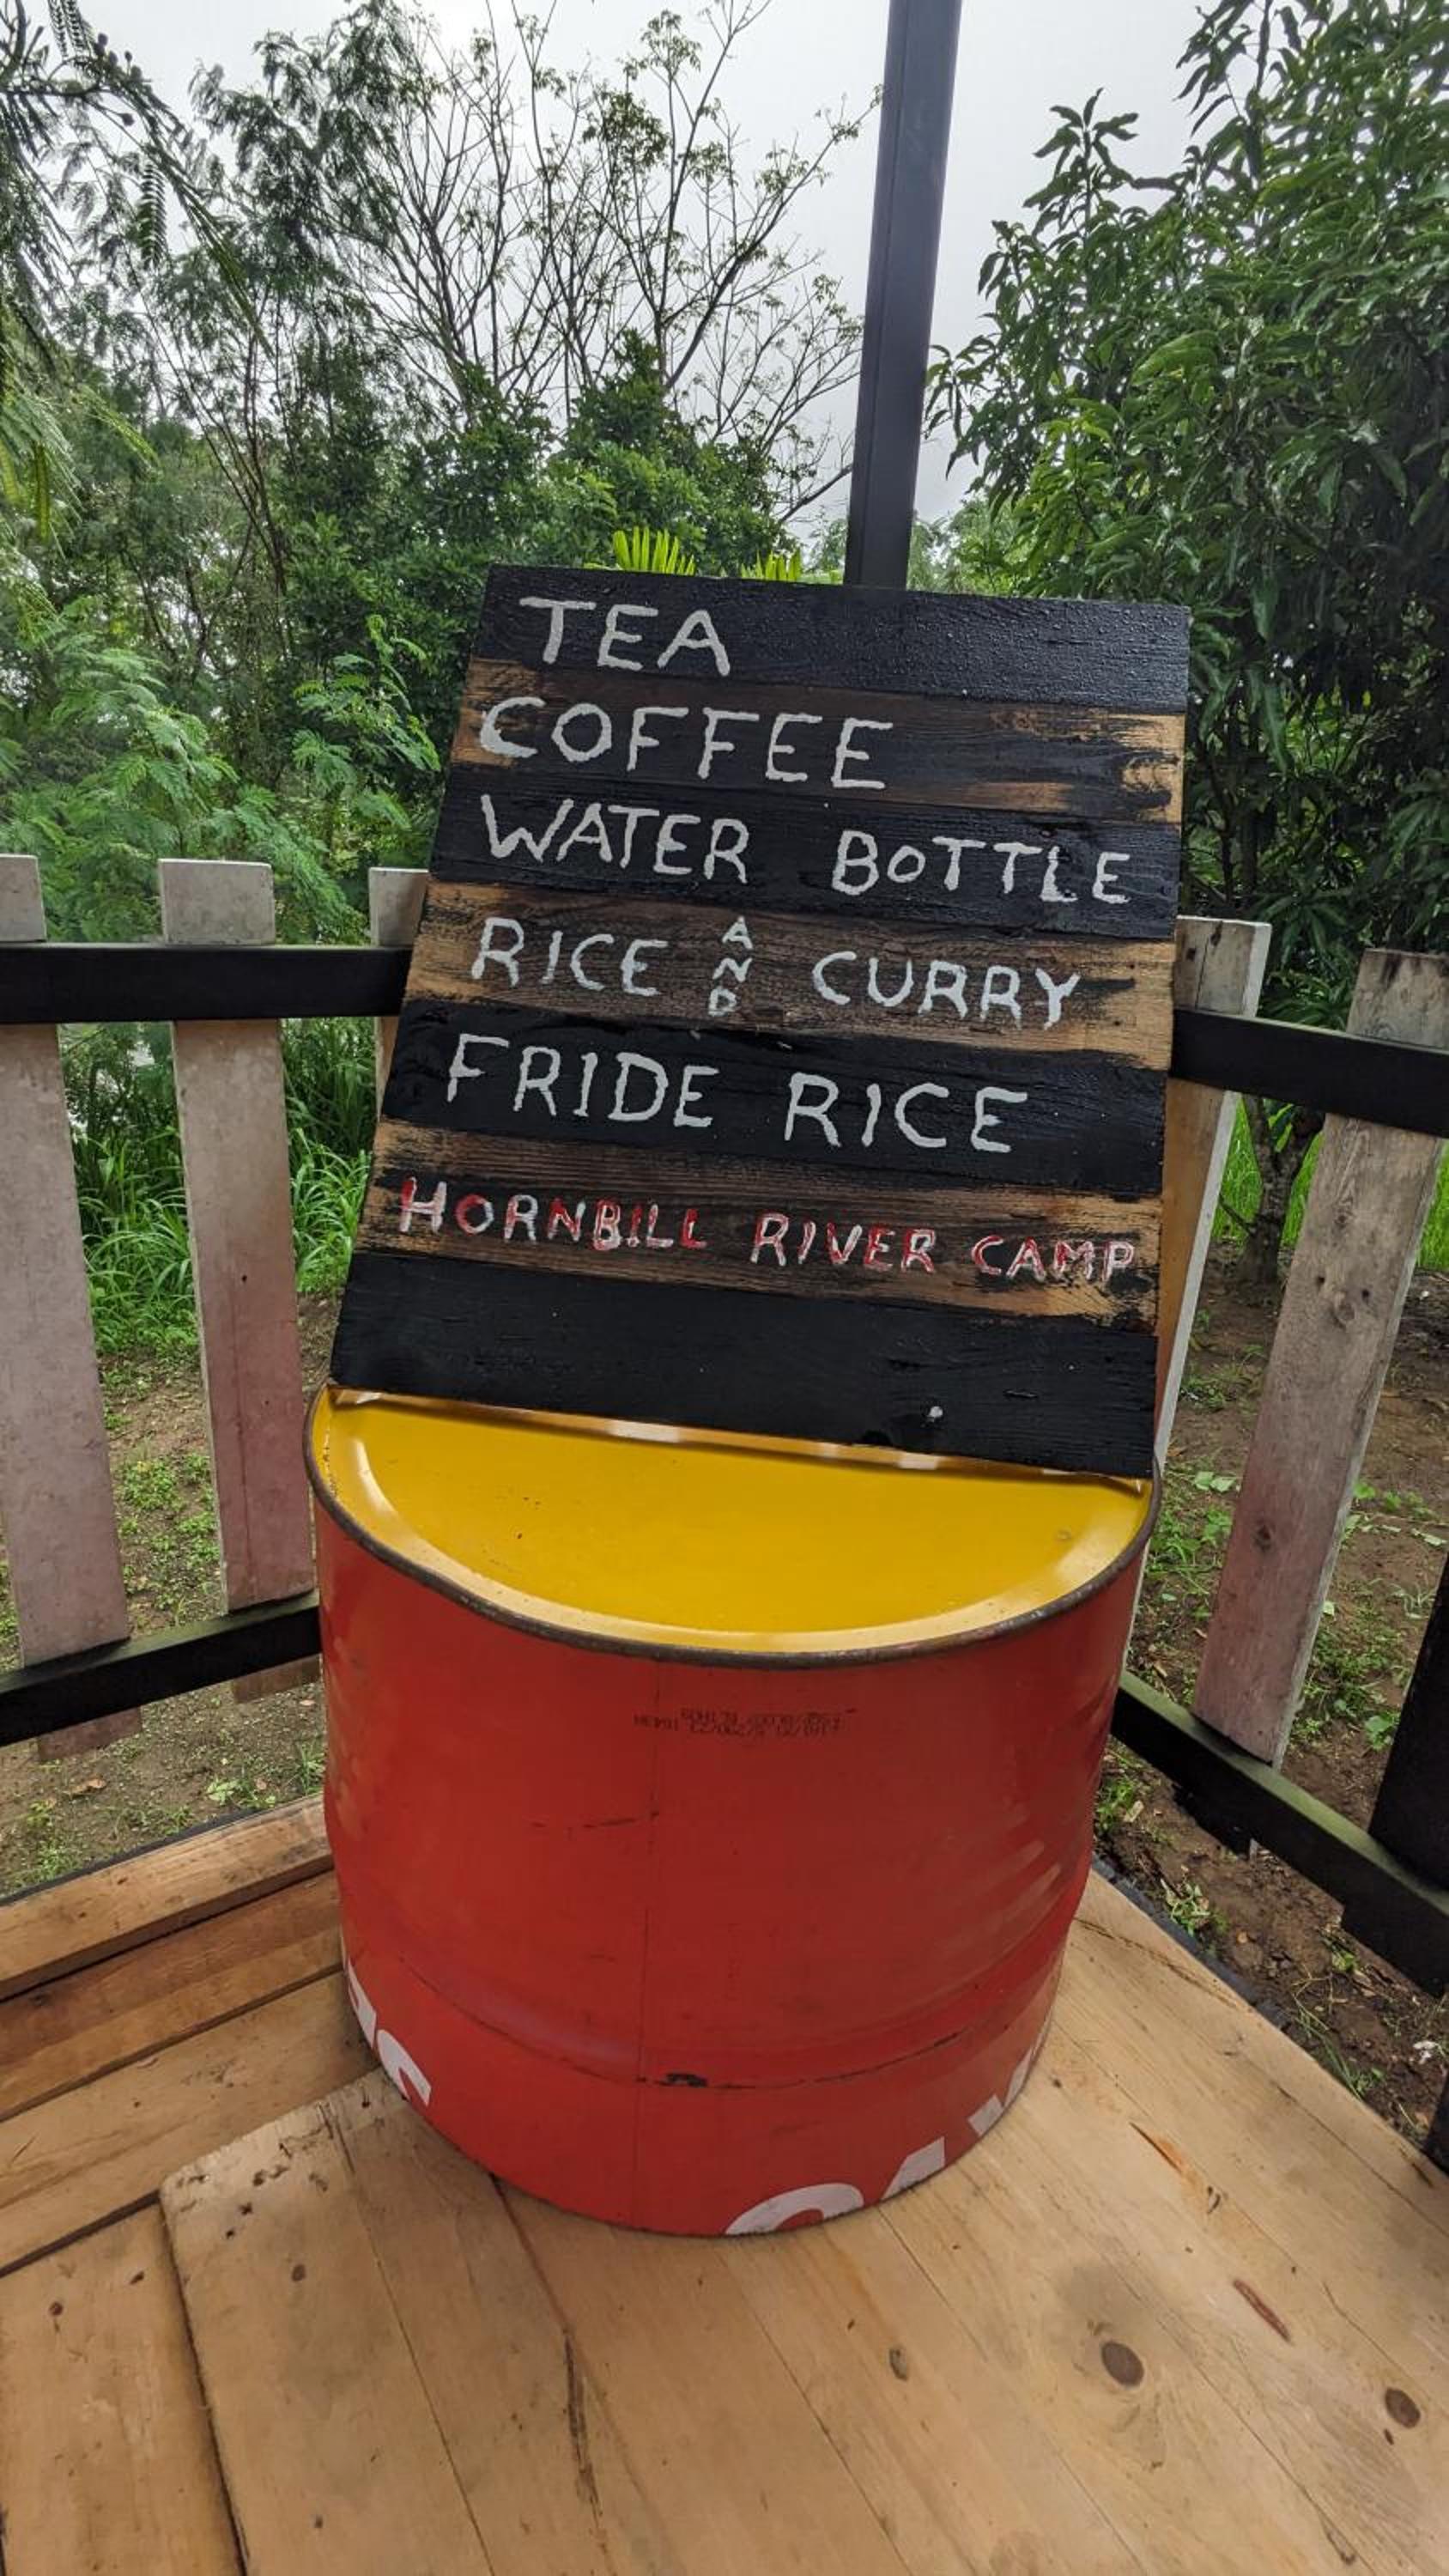 TEA
COFFEE
WATER BOTTLE
RICE AND CURRY
FRIDE RICE
HORNBILL RIVER CAMP